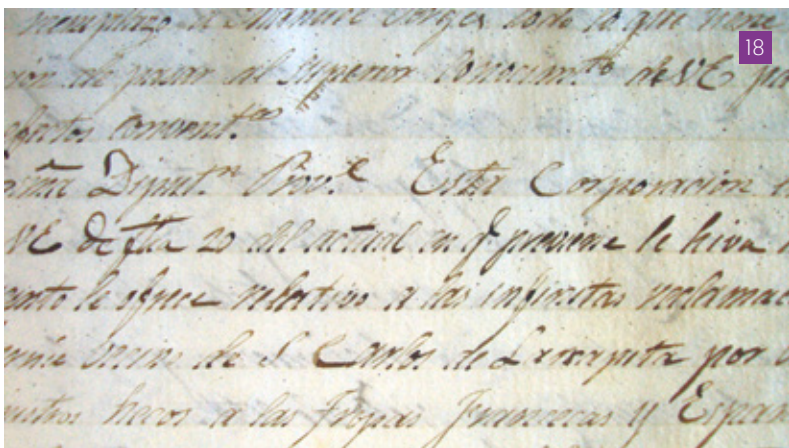 18
reemplazo a Manuel Borges todo lo que tiene
ción de pasar al Superior conocim.to de VE pa
efectos convent.es
Diput.n Prov.l Esta Corporacion
VE de fha 20 del actual en q previene le hiva
le ofrece relativo a las infinitas reclamac
vecino de S. Carlos de la rapita por
hecos a las Tropas Francesas y Españ